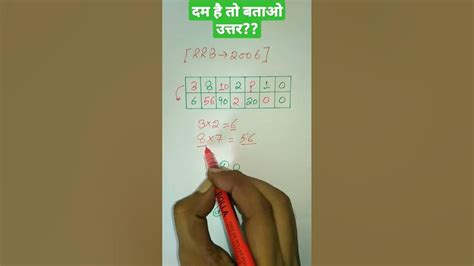 दम है तो बताओ
उत्तर??
[223→2006]
3 8 10 2 ? 1 0
6 56 90 2 20 0 0
3×2=6
8×7=56